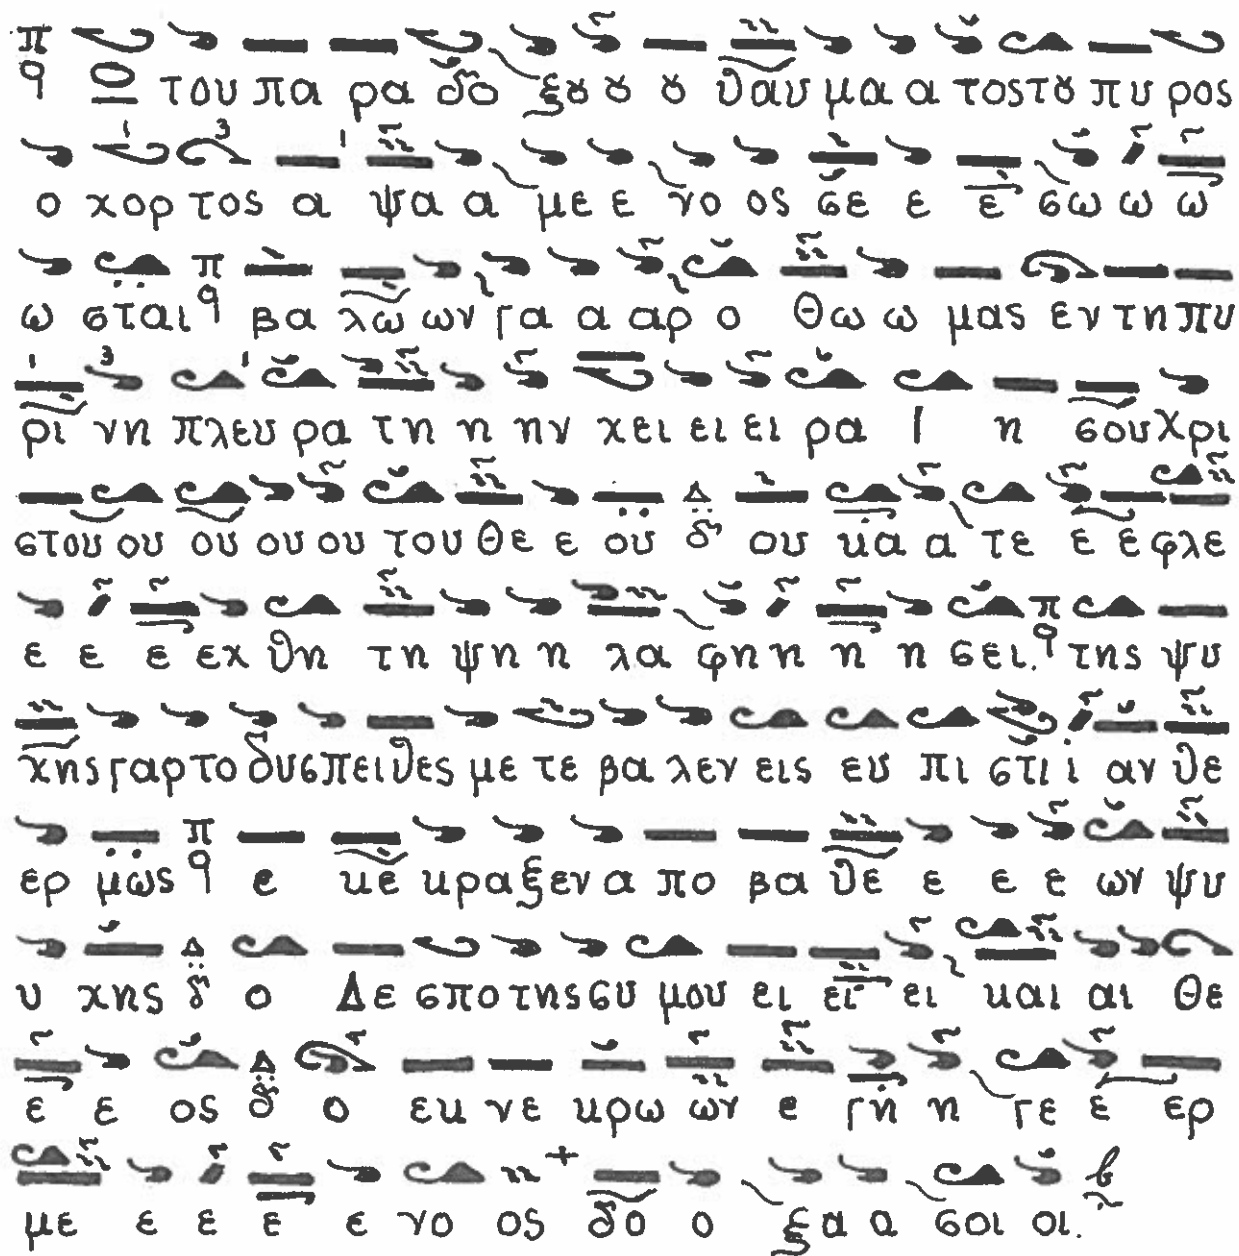 Ω του πα ρα δο ξȣ ȣ ȣ θαυ μα α τος τȣ πυ ρος
ο χορ τος α ψα α με ε νο ος σε ε ε σω ω ω
ω σται βα λω ων γα α αρ ο Θω ω μας εν τη πυ
ρι νη πλευ ρα τη η ην χει ει ει ρα Ι η σου Χρι
στου ου ου ου ου του Θε ε ου ου κα α τε ε ε φλε
ε ε ε εχ θη τη ψη η λα φη η η η σει. της ψυ
χης γαρ το δυσπειθες με τε βα λεν εις ευ πι στι ι αν θε
ερ μως ε κε κραξεν α πο βα θε ε ε ε ων ψυ
υ χης ο Δε σπο της συ μου ει ει ει και αι Θε
ε ε ος ο εκ νε κρω ων ε γη η γε ε ερ
με ε ε ε ε νο ος δο ο ξα α σοι οι.